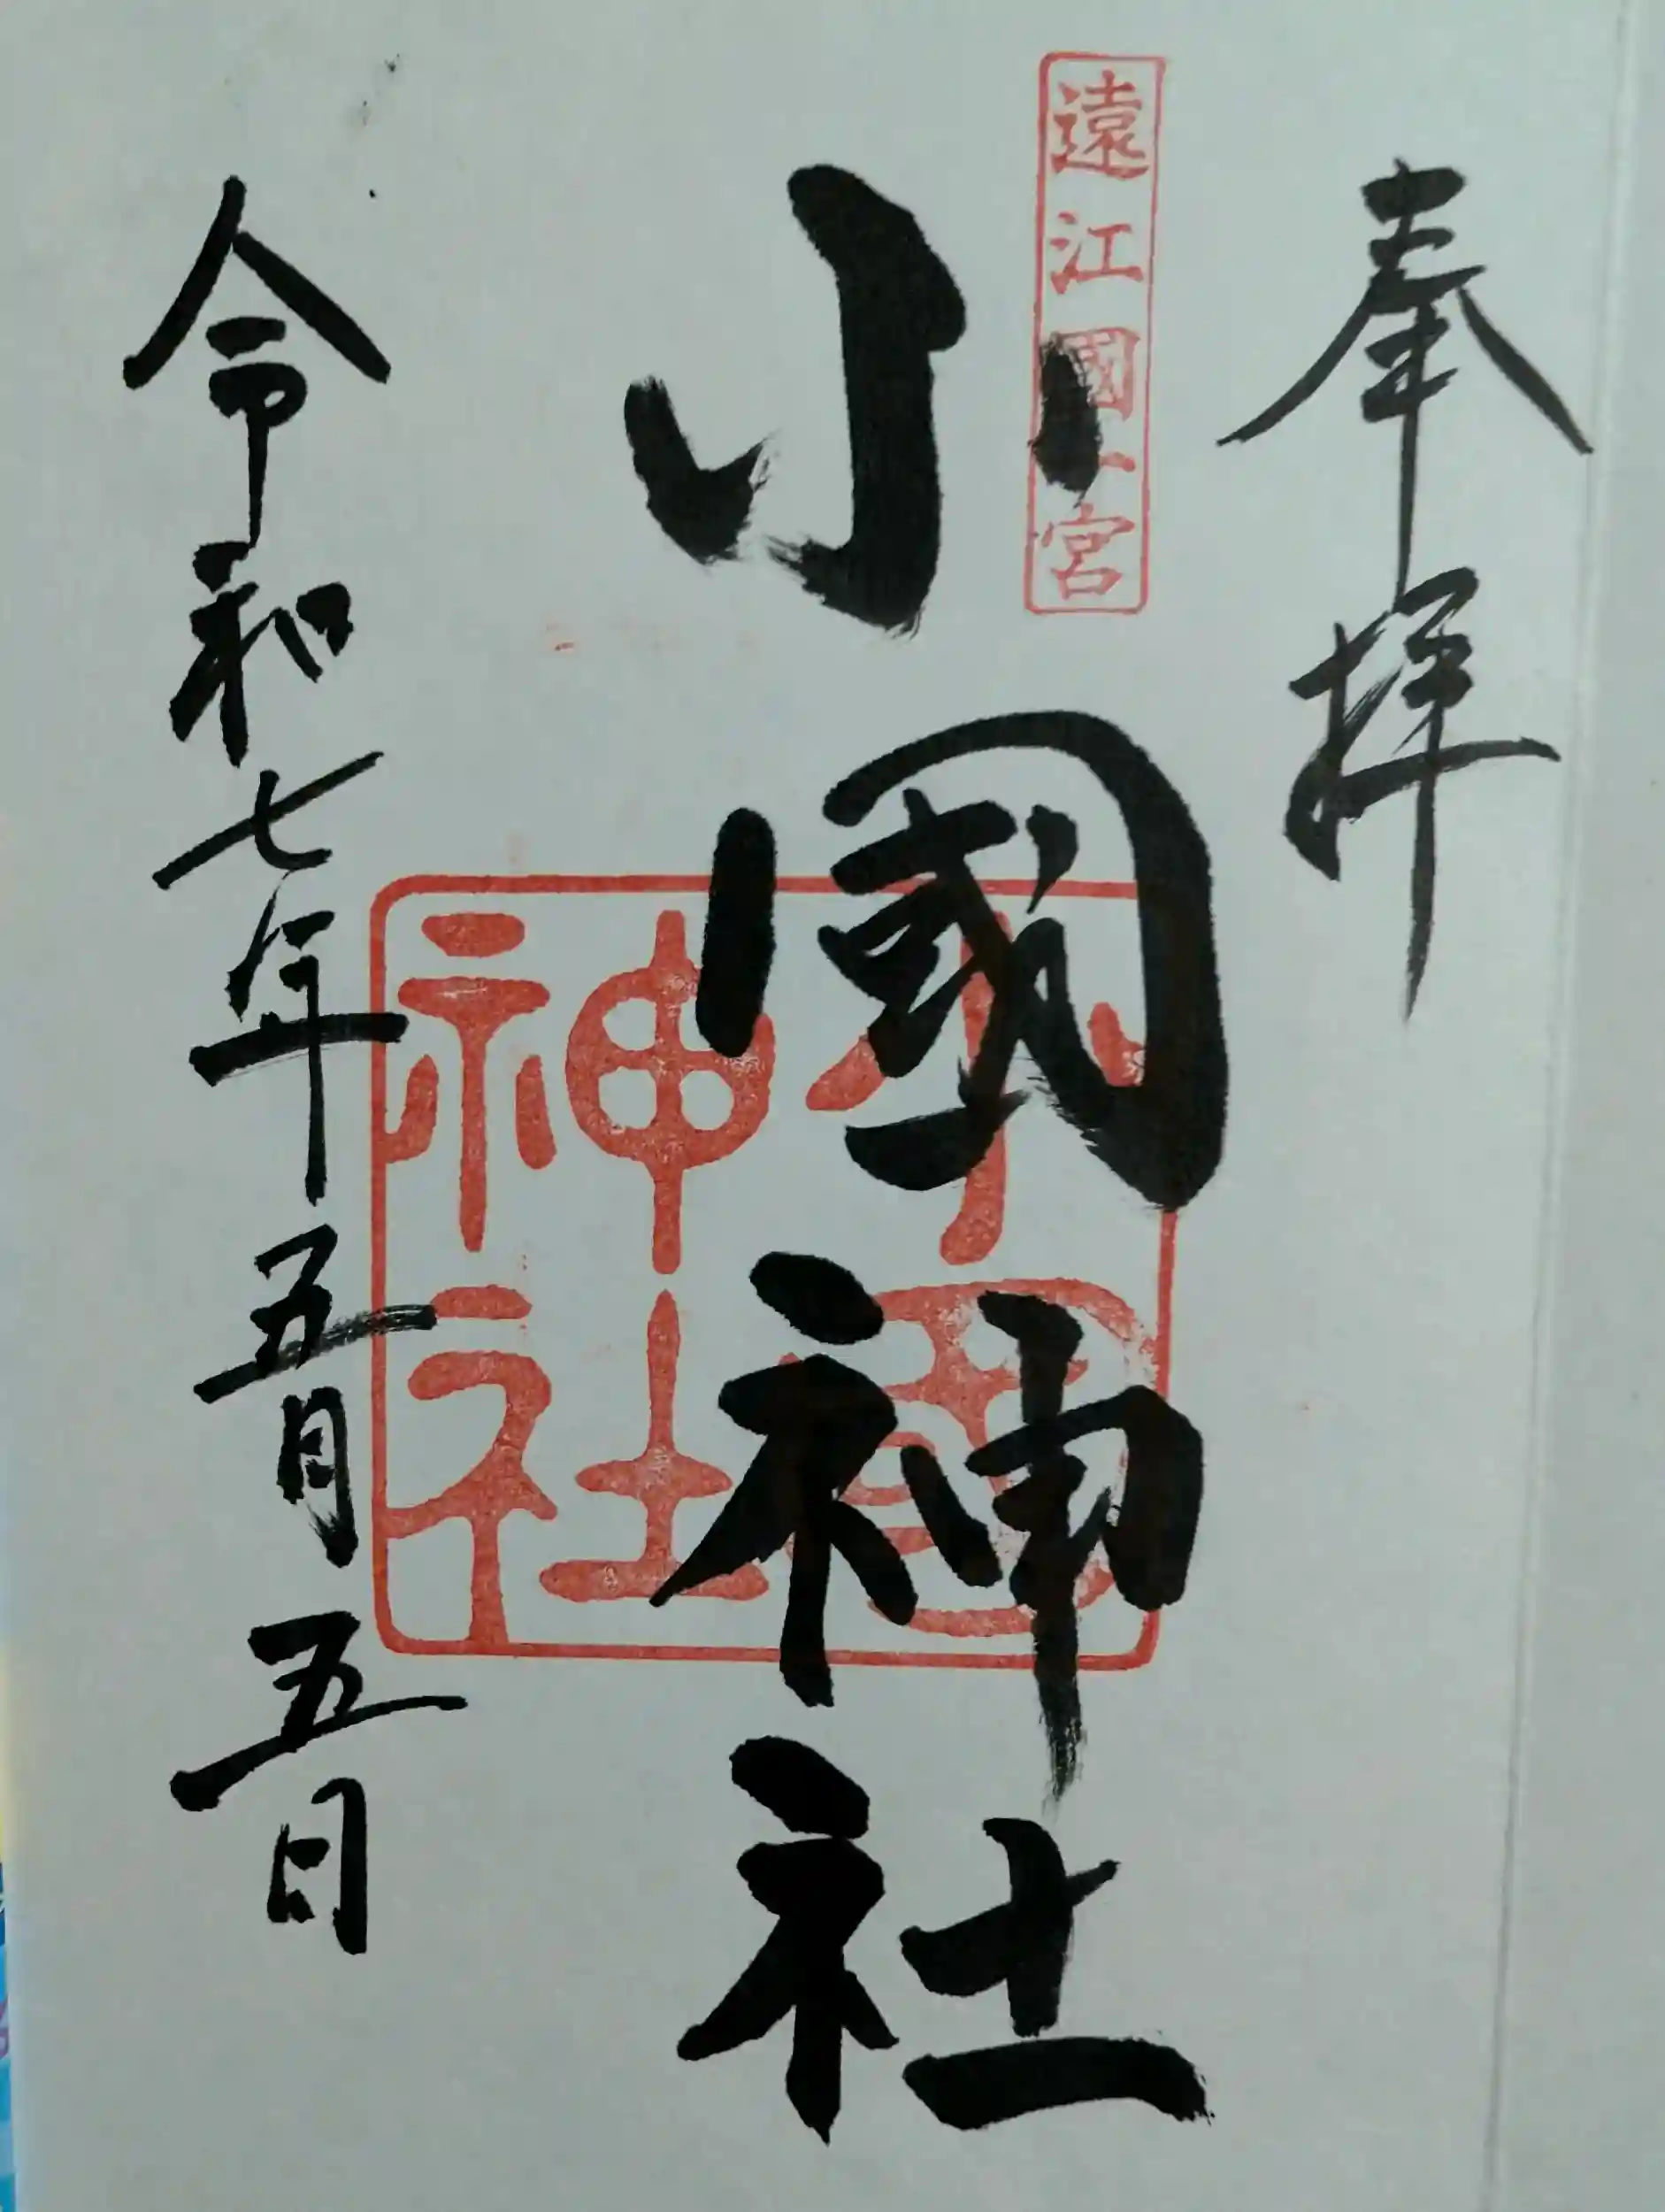 奉拝
遠江國一宮
小國神社
小國
神社
令和七年五月五日